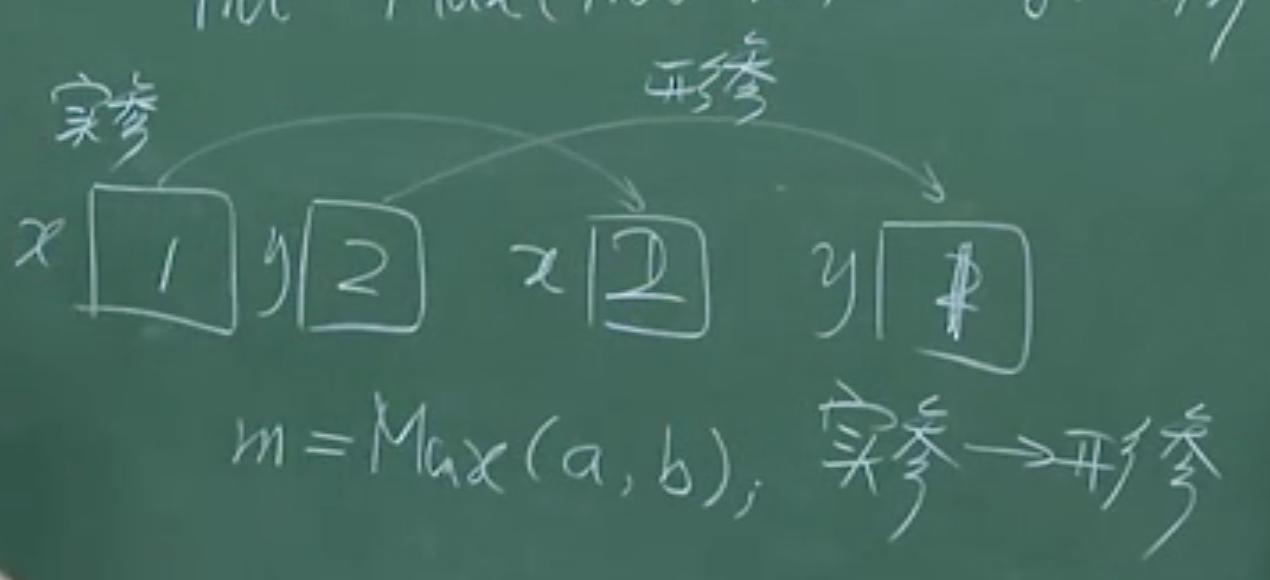 Max(
实参 形参
x 1 y 2 x 2 y
m=Max(a,b); 实参→形参